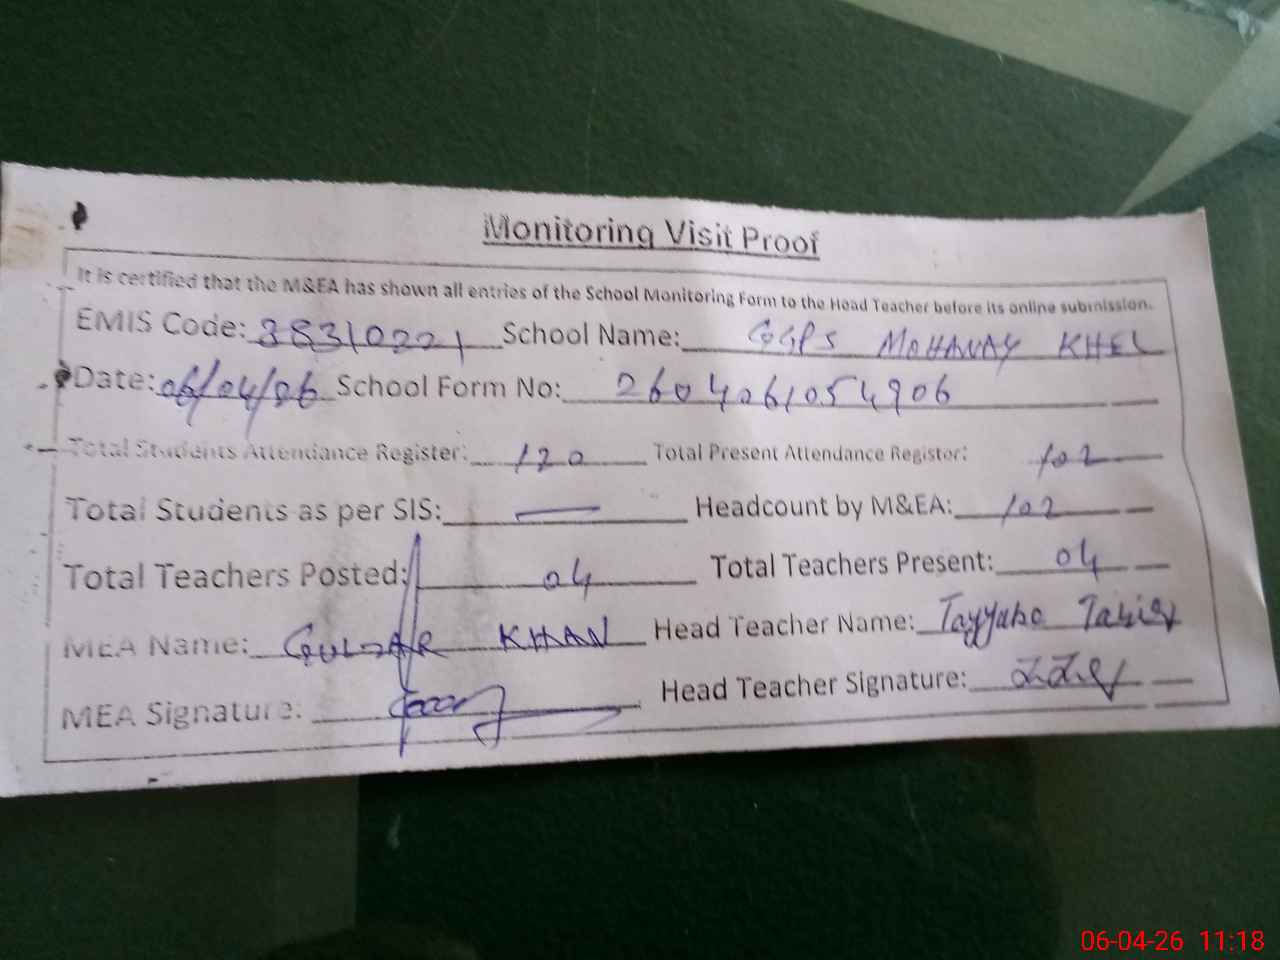 Monitoring Visit Proof
It is certified that the M&EA has shown all entries of the School Monitoring Form to the Head Teacher before its online submission.
EMIS Code: 38310221 School Name: GGPS MOHAWAY KHEL
Date: 06/04/26 School Form No: 2604061054906
Total Students Attendance Register: 120 Total Present Attendance Register: 102
Total Students as per SIS: — Headcount by M&EA: 102
Total Teachers Posted: 04 Total Teachers Present: 04
MEA Name: GULZAR KHAN Head Teacher Name: Tayyaba Tahir
MEA Signature: Head Teacher Signature:
06-04-26 11:18